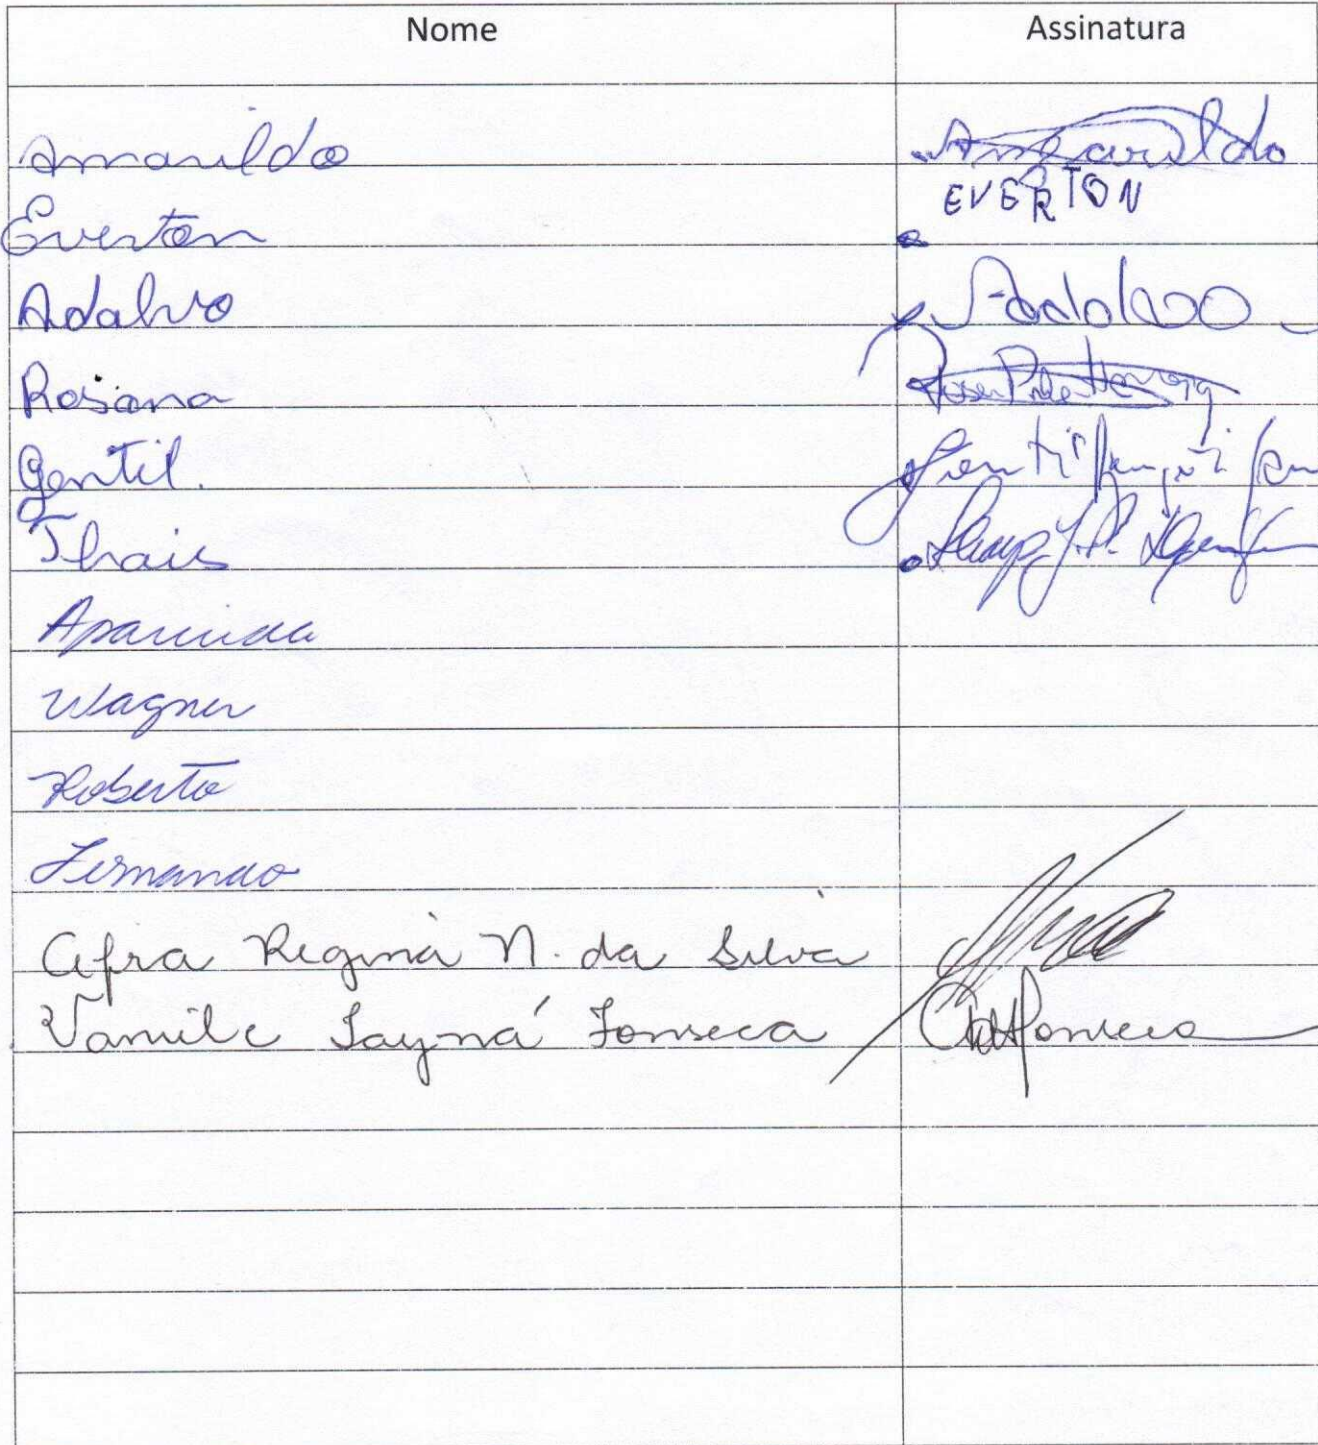 Nome Assinatura
Amarildo Amarildo
Everton EVERTON
Adalvo Adalvo
Rosana
Gentil. Gentil
Thais
Aparecida
Wagner
Roberto
Fernando
Afra Regina N. da Silva
Vamile Tayná Fonseca Fonseca